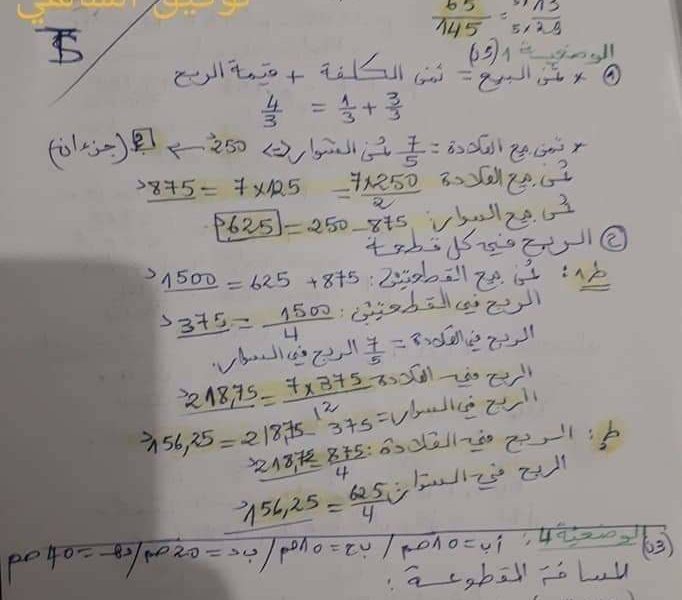 توفيق الساسي
65/145 = 5×13/5×29
الوضعية 1 (05)
① * ثمن البيع = ثمن الكلفة + قيمة الربح
4/3 = 1/3 + 3/3
* ثمن بيع القلادة = 7/5 ثمن السوار ⇔ 250د ← 2 (جزءان)
ثمن بيع القلادة 7×250/2 = 7×125 = 875د
ثمن بيع السوار: 875 - 250 = 625د
② الربح في كل قطعة
ط1: ثمن بيع القطعتين: 875 + 625 = 1500د
الربح في القطعتين: 1500/4 = 375د
الربح في القلادة = 7/5 الربح في السوار.
الربح في القلادة 7×375/12 = 218,75د
الربح في السوار = 375 - 218,75 = 156,25د
ط2: الربح في القلادة: 875/4 = 218,75د
الربح في السوار: 625/4 = 156,25د
(03) الوضعية 4: أب = 10صم / بج = 10صم / بد = 20صم / = 40صم
المسافة المقطوعة: